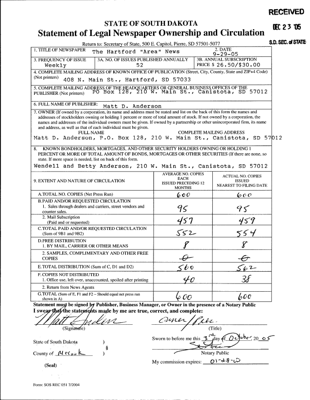 RECEIVED
DEC 23 '05
S.D. SEC. of STATE
STATE OF SOUTH DAKOTA
Statement of Legal Newspaper Ownership and Circulation
Return to: Secretary of State, 500 E. Capitol, Pierre, SD 57501-5077
1. TITLE OF NEWSPAPER The Hartford "Area" News
2. DATE 9-29-05
3. FREQUENCY OF ISSUE Weekly
3A. NO. OF ISSUES PUBLISHED ANNUALLY 52
3B. ANNUAL SUBSCRIPTION PRICE $ 26.50/$30.00
4. COMPLETE MAILING ADDRESS OF KNOWN OFFICE OF PUBLICATION (Street, City, County, State and ZIP+4 Code) (Not printers)
408 N. Main St., Hartford, SD 57033
5. COMPLETE MAILING ADDRESS OF THE HEADQUARTERS OR GENERAL BUSINESS OFFICES OF THE PUBLISHER (Not printer) PO Box 128, 210 W. Main St., Canistota, SD 57012
6. FULL NAME OF PUBLISHER: Matt D. Anderson
7. OWNER (If owned by a corporation, its name and address must be stated and also immediately thereafter the names and addresses of stockholders owning or holding 1 percent or more of total amount of stock. If not owned by a corporation, the names and addresses of the individual owners must be given. If owned by a partnership or other unincorporated firm, its name and address, as well as that of each individual must be given.
FULL NAME COMPLETE MAILING ADDRESS
Matt D. Anderson, P.O. Box 128, 210 W. Main St., Canistota, SD 57012
8. KNOWN BONDHOLDERS, MORTGAGES, AND OTHER SECURITY HOLDERS OWNING OR HOLDING 1 PERCENT OR MORE OF TOTAL AMOUNT OF BONDS, MORTGAGES OR OTHER SECURITIES (If there are none, so state. If more space is needed, list on back of this form.
Wendell and Betty Anderson, 210 W. Main St., Canistota, SD 57012
9. EXTENT AND NATURE OF CIRCULATION
AVERAGE NO. COPIES EACH ISSUED PRECEDING 12 MONTHS
ACTUAL NO. COPIES ISSUED NEAREST TO FILING DATE
A. TOTAL NO. COPIES (Net Press Run) 600 600
B. PAID AND/OR REQUESTED CIRCULATION
1. Sales through dealers and carriers, street vendors and counter sales. 95 95
2. Mail Subscription (Paid and or requested) 457 459
C. TOTAL PAID AND/OR REQUESTED CIRCULATION (Sum of 9B1 and 9B2) 552 554
D. FREE DISTRIBUTION
1. BY MAIL, CARRIER OR OTHER MEANS 8 8
2. SAMPLES, COMPLIMENTARY AND OTHER FREE COPIES
E. TOTAL DISTRIBUTION (Sum of C, D1 and D2) 560 562
F. COPIES NOT DISTRIBUTED
1. Office use, left over, unaccounted, spoiled after printing 40 38
2. Return from News Agents
G. TOTAL (Sum of E, F1 and F2 - Should equal net press run shown in A) 600 600
Statement must be signed by Publisher, Business Manager, or Owner in the presence of a Notary Public
I swear that the statements made by me are true, correct, and complete:
Matt Anderson
(Signature) (Title)
State of South Dakota )
County of )
(Seal)
Sworn to before me this day of October, 20 05
Notary Public
My commission expires:
Form: SOS REC 051 7/2004